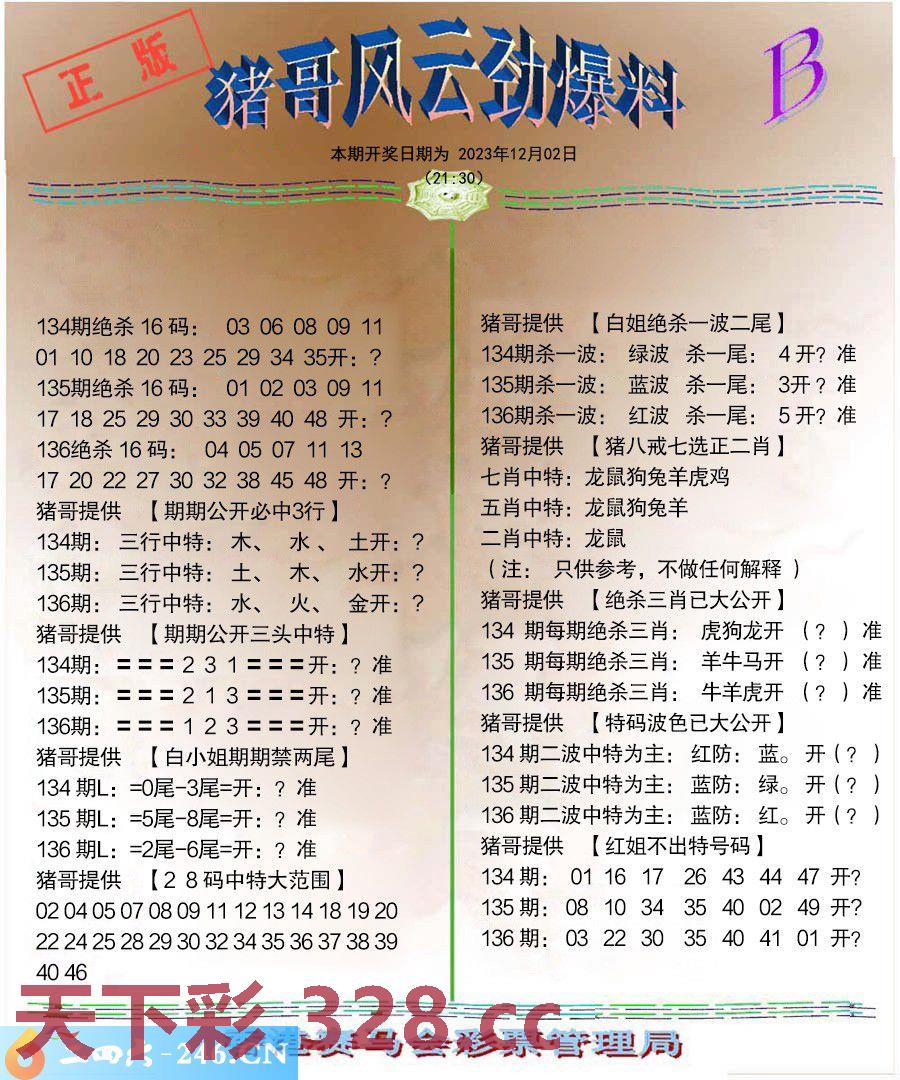 正版
猪哥风云劲爆料
B
本期开奖日期为 2023年12月02日
(21:30)
134期绝杀16码： 03 06 08 09 11
01 10 18 20 23 25 29 34 35开：?
135期绝杀16码： 01 02 03 09 11
17 18 25 29 30 33 39 40 48 开：?
136绝杀16码： 04 05 07 11 13
17 20 22 27 30 32 38 45 48 开：?
猪哥提供 【期期公开必中3行】
134期： 三行中特： 木、 水、 土开：?
135期： 三行中特： 土、 木、 水开：?
136期： 三行中特： 水、 火、 金开：?
猪哥提供 【期期公开三头中特】
134期：===231===开：? 准
135期：===213===开：? 准
136期：===123===开：? 准
猪哥提供 【白小姐期期禁两尾】
134期L：=0尾-3尾=开：? 准
135期L：=5尾-8尾=开：? 准
136期L：=2尾-6尾=开：? 准
猪哥提供 【28码中特大范围】
02 04 05 07 08 09 11 12 13 14 18 19 20
22 24 25 28 29 30 32 34 35 36 37 38 39
40 46
猪哥提供 【白姐绝杀一波二尾】
134期杀一波： 绿波 杀一尾： 4开? 准
135期杀一波： 蓝波 杀一尾： 3开? 准
136期杀一波： 红波 杀一尾： 5开? 准
猪哥提供 【猪八戒七选正二肖】
七肖中特：龙鼠狗兔羊虎鸡
五肖中特：龙鼠狗兔羊
二肖中特：龙鼠
（注： 只供参考，不做任何解释 ）
猪哥提供 【绝杀三肖已大公开】
134 期每期绝杀三肖： 虎狗龙开 （? ）准
135 期每期绝杀三肖： 羊牛马开 （? ）准
136 期每期绝杀三肖： 牛羊虎开 （? ）准
猪哥提供 【特码波色已大公开】
134期二波中特为主： 红防： 蓝。开(? )
135期二波中特为主： 蓝防： 绿。开(? )
136期二波中特为主： 蓝防： 红。开(? )
猪哥提供 【红姐不出特号码】
134期： 01 16 17 26 43 44 47 开?
135期： 08 10 34 35 40 02 49 开?
136期： 03 22 30 35 40 41 01 开?
天下彩 328.cc
-246.CN
港赛马会彩票管理局